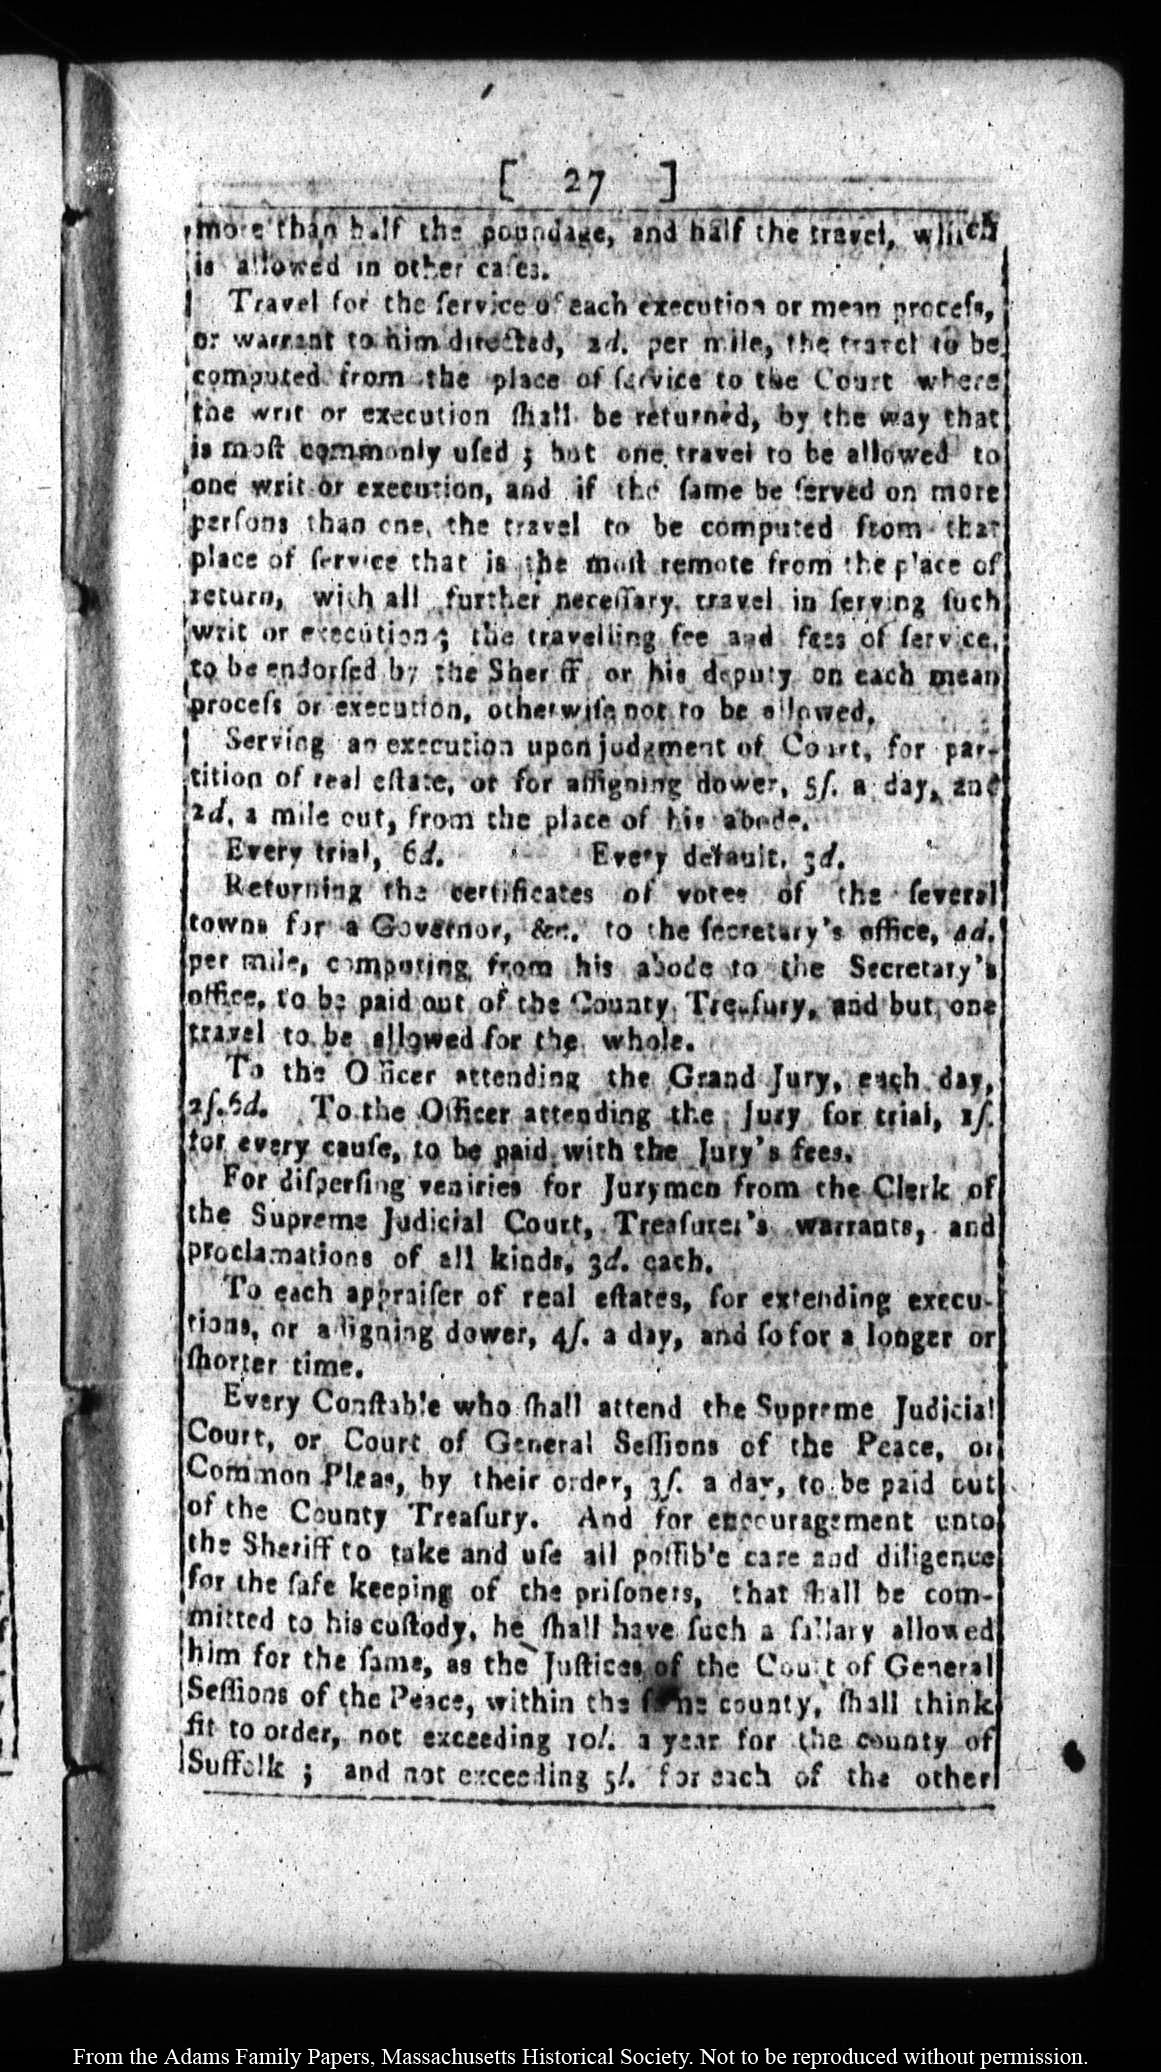 [ 27 ]
more than half the poundage, and half the travel, which
is allowed in other caſes.
Travel for the ſervice of each execution or mean proceſs,
or warrant to him directed, 2d. per mile, the travel to be
computed from the place of ſervice to the Court where
the writ or execution ſhall be returned, by the way that
is moſt commonly uſed ; but one travel to be allowed to
one writ or execution, and if the ſame be ſerved on more
perſons than one, the travel to be computed from that
place of ſervice that is the moſt remote from the place of
return, with all further neceſſary travel in ſerving ſuch
writ or execution ; the travelling fee and fees of ſervice,
to be endorſed by the Sheriff or his deputy on each mean
proceſs or execution, otherwiſe not to be allowed.
Serving an execution upon judgment of Court, for par-
tition of real eſtate, or for aſſigning dower, 5ſ. a day, and
2d. a mile out, from the place of his abode.
Every trial, 6d. Every default, 3d.
Returning the certificates of votes of the ſeveral
towns for a Governor, &c. to the ſecretary's office, 2d.
per mile, computing from his abode to the Secretary's
office, to be paid out of the County Treaſury, and but one
travel to be allowed for the whole.
To the Officer attending the Grand Jury, each day,
2ſ.6d. To the Officer attending the Jury for trial, 1ſ.
for every cauſe, to be paid with the Jury's fees.
For diſperſing veniries for Jurymen from the Clerk of
the Supreme Judicial Court, Treaſurer's warrants, and
proclamations of all kinds, 3d. each.
To each appraiſer of real eſtates, for extending execu-
tions, or aſſigning dower, 4ſ. a day, and ſo for a longer or
ſhorter time.
Every Conſtable who ſhall attend the Supreme Judicial
Court, or Court of General Seſſions of the Peace, or
Common Pleas, by their order, 3ſ. a day, to be paid out
of the County Treaſury. And for encouragement unto
the Sheriff to take and uſe all poſſible care and diligence
for the ſafe keeping of the priſoners, that ſhall be com-
mitted to his cuſtody, he ſhall have ſuch a ſallary allowed
him for the ſame, as the Juſtices of the Court of General
Seſſions of the Peace, within the ſame county, ſhall think
fit to order, not exceeding 10l. a year for the county of
Suffolk ; and not exceeding 5l. for each of the other
From the Adams Family Papers, Massachusetts Historical Society. Not to be reproduced without permission.